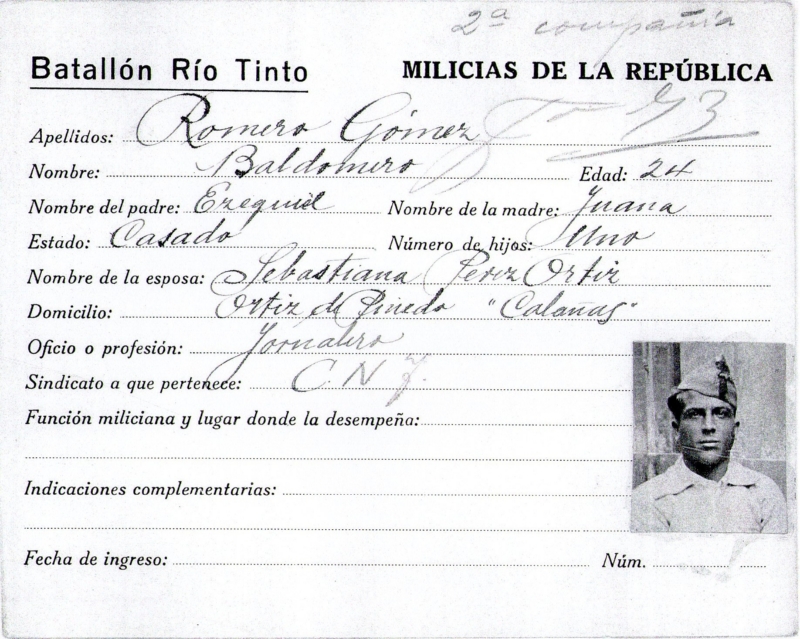 2ª compañía
Batallón Río Tinto MILICIAS DE LA REPÚBLICA
Apellidos: Romero Gómez 93
Nombre: Baldomero Edad: 24
Nombre del padre: Ezequiel Nombre de la madre: Juana
Estado: Casado Número de hijos: Uno
Nombre de la esposa: Sebastiana Pérez Ortiz
Domicilio: Ortiz de Pinedo "Calañas"
Oficio o profesión: Jornalero
Sindicato a que pertenece: C N T.
Función miliciana y lugar donde la desempeña:
Indicaciones complementarias:
Fecha de ingreso: Núm.